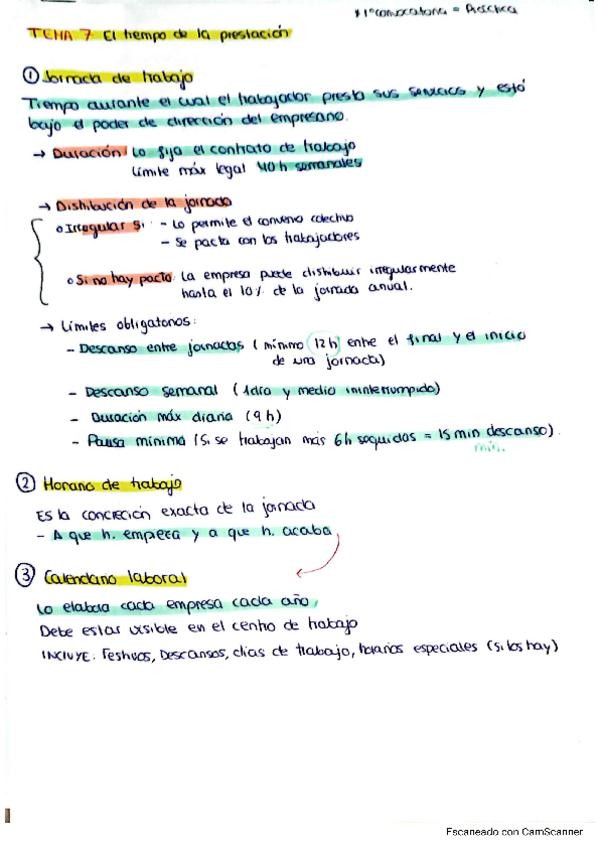 * 1ª convocatoria = Práctica
TEMA 7 El tiempo de la prestación
① Jornada de trabajo
Tiempo durante el cual el trabajador presta sus servicios y está
bajo el poder de dirección del empresario.
→ Duración: Lo fija el contrato de trabajo
Límite máx legal 40h semanales
→ Distribución de la jornada
o Irregular si: - Lo permite el convenio colectivo
- Se pacta con los trabajadores
o Si no hay pacto: La empresa puede distribuir irregularmente
hasta el 10% de la jornada anual.
→ Límites obligatorios:
- Descanso entre jornadas (mínimo 12h entre el final y el inicio
de una jornada)
- Descanso semanal (1día y medio ininterrumpido)
- Duración máx diaria (9h)
- Pausa mínima (Si se trabajan más 6h seguidas = 15 min descanso).
mín.
② Horario de trabajo
Es la concreción exacta de la jornada
- A que h. empieza y a que h. acaba
③ Calendario laboral
Lo elabora cada empresa cada año,
Debe estar visible en el centro de trabajo
INCLUYE: Festivos, Descansos, días de trabajo, horarios especiales (si los hay)
Escaneado con CamScanner